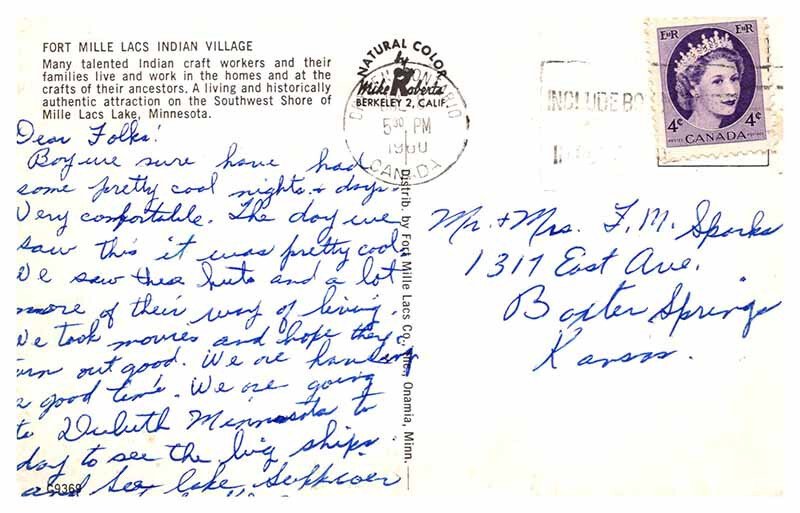 FORT MILLE LACS INDIAN VILLAGE
Many talented Indian craft workers and their
families live and work in the homes and at the
crafts of their ancestors. A living and historically
authentic attraction on the Southwest Shore of
Mille Lacs Lake, Minnesota.
Dear Folks!
Boy we sure have had
some pretty cool nights & days.
Very comfortable. The day we
saw this it was pretty cool
We saw these huts and a lot
more of their way of living.
We took movies and hope they
turn out good. We are having
a good time. We are going
to Duluth Minnesota to
day to see the big ships.
and see lake Suppierer
C9369
NATURAL COLOR
by
Mike Roberts
BERKELEY 2, CALIF.
ONTARIO
5 30 PM
1960
CANADA
Distrib. by Fort Mille Lacs Co., Onamia, Minn.
INCLUDE
EIIR EIIR
4¢ 4¢
POSTES CANADA POSTAGE
Mr. & Mrs. F. M. Sparks
1317 East Ave.
Baxter Springs
Kansas.